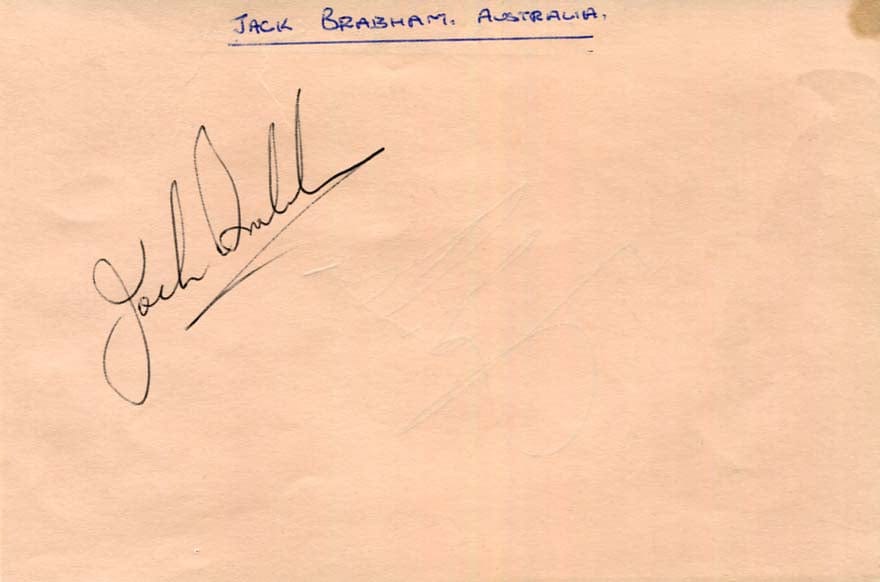 JACK BRABHAM. AUSTRALIA.
Jack Brabham